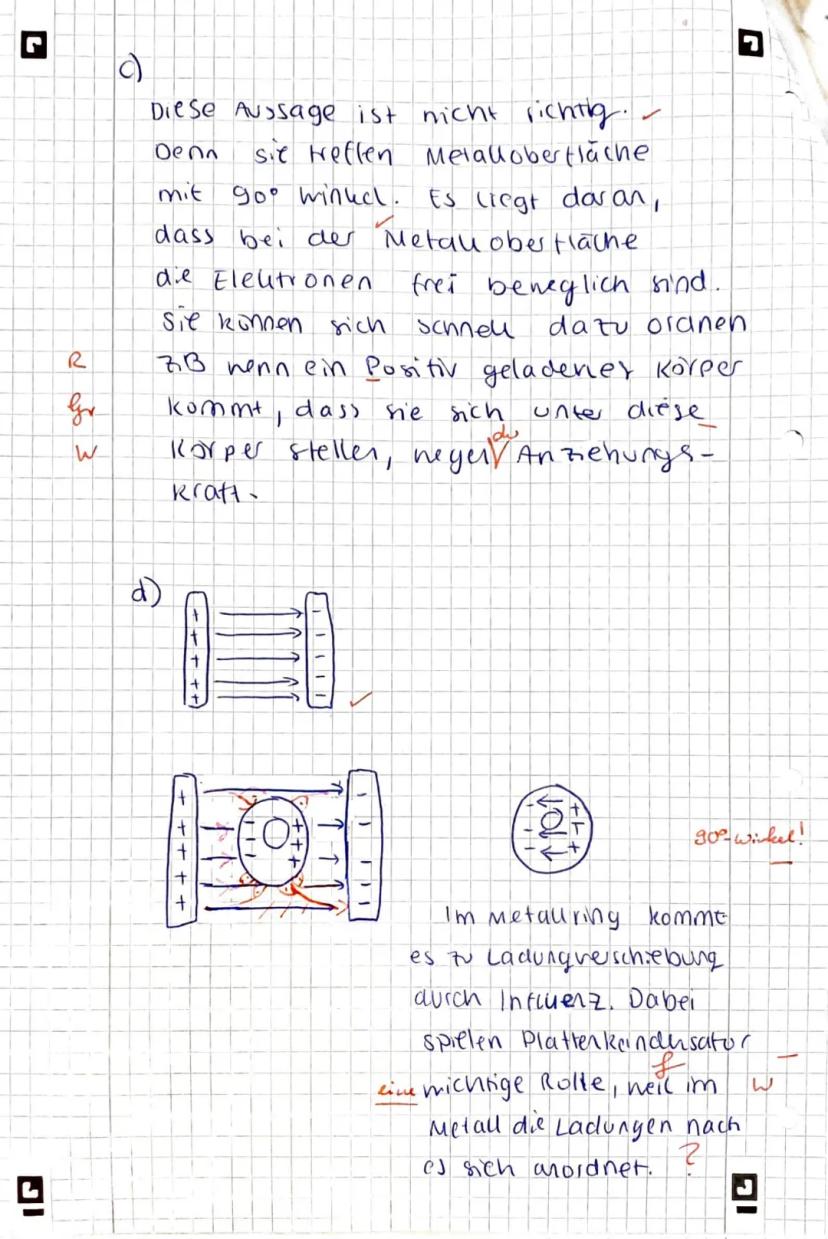 c)
Diese Aussage ist nicht richtig. ✓
Denn sie treffen Metalloberfläche
mit 90° Winkel. Es liegt daran,
dass bei der Metalloberfläche
die Elektronen frei beweglich sind.
Sie können sich schnell dazu ordnen
R z.B wenn ein Positiv geladener Körper
Gr kommt, dass sie sich unter diese
W Körper stellen, wegen der Anziehungs-
kraft.
d)
+ -
+ -
+ -
+ -
+ -
✓
+ -
+ - + -
+ - + -
+ - + -
+ -
- +
- +
- +
90°-Winkel!
Im Metallring kommt
es zu Ladungverschiebung
durch Influenz. Dabei
spielen Plattenkondensator
f
eine wichtige Rolle, weil im W
Metall die Ladungen nach
es sich anordnet. ?